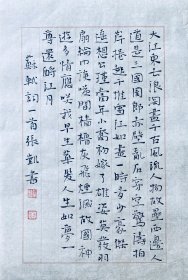 大江東去浪淘盡千古風流人物故壘西邊人
道是三國周郎赤壁亂石穿空驚濤拍
岸捲起千堆雪江山如畫一時多少豪傑
遙想公瑾當年小喬初嫁了雄姿英發羽
扇綸巾談笑間檣櫓灰飛煙滅故國神
遊多情應笑我早生華髮人生如夢一
尊還酹江月
蘇軾詞一首張凱書